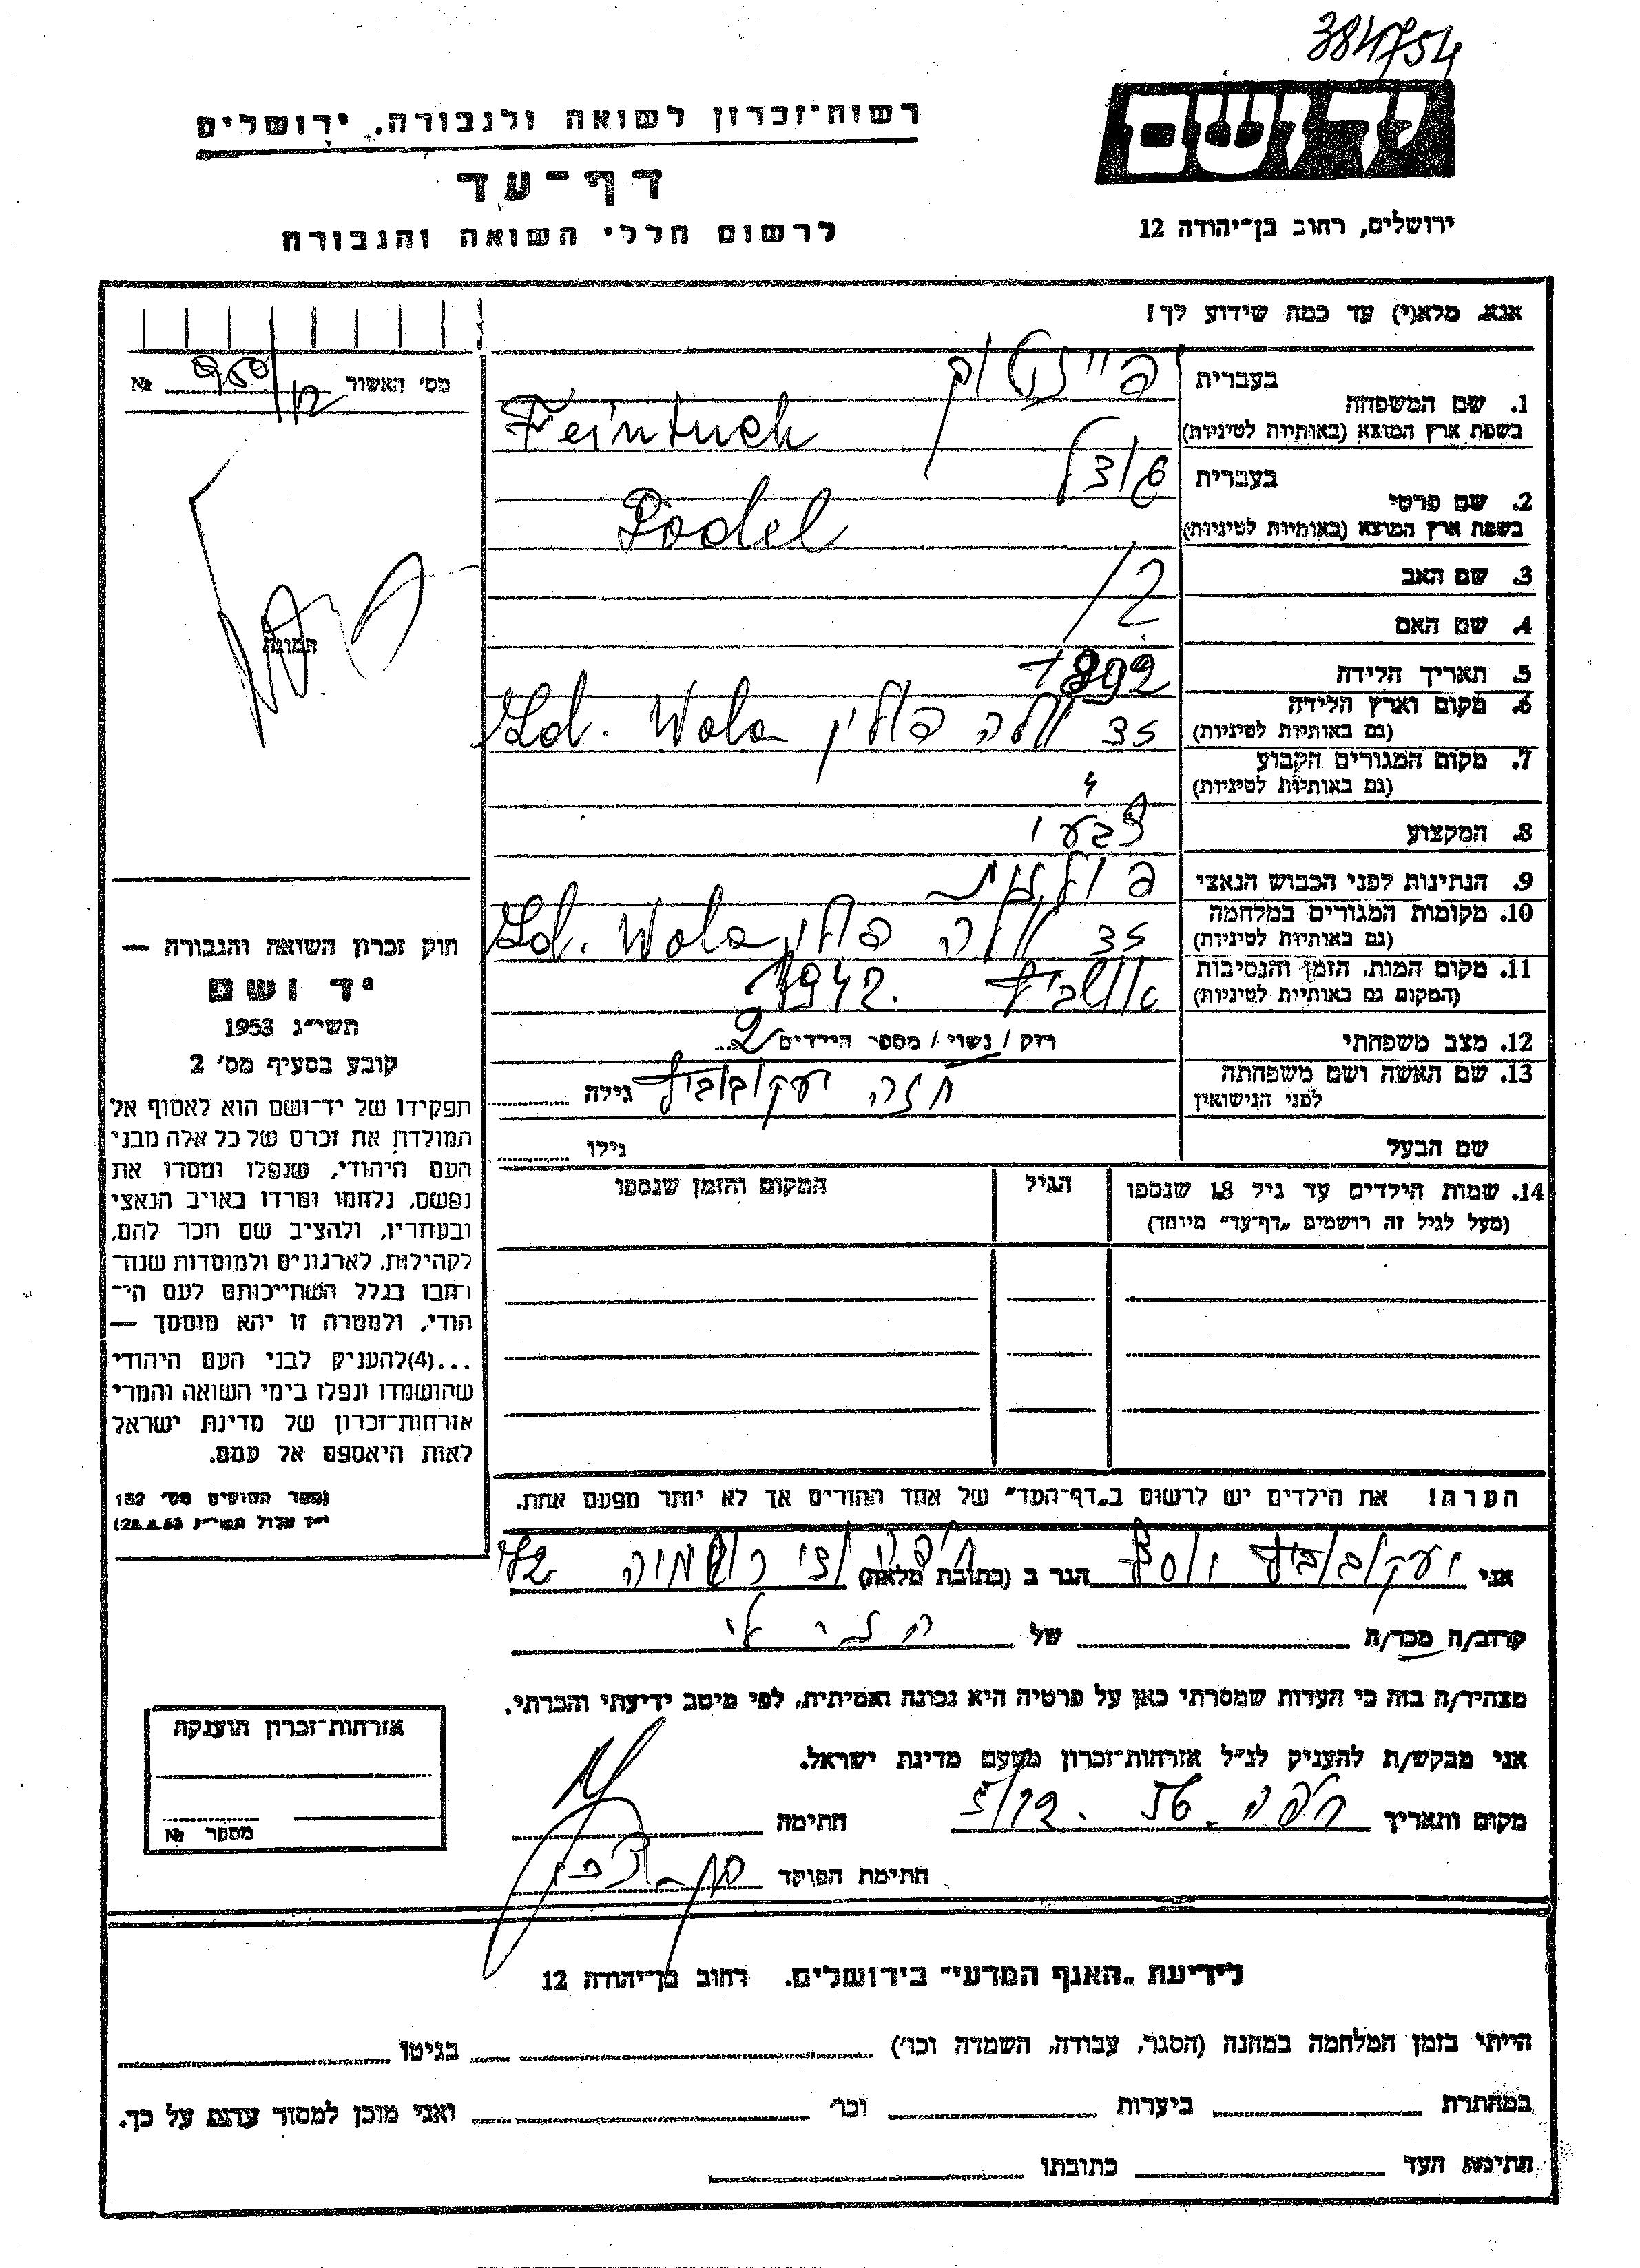 384754
יד ושם
ירושלים, רחוב בן־יהודה 12
רשות־זכרון לשואה ולגבורה, ירושלים
דף־עד
לרשום חללי השואה והגבורה
אנא, מלא(י) עד כמה שידוע לך!
מס׳ האשור №
תמונה
1. שם המשפחה
בעברית פיינטוך
בשפת ארץ המוצא (באותיות לטיניות) Feintuch
2. שם פרטי
בעברית
בשפת ארץ המוצא (באותיות לטיניות) Podel
3. שם האב
4. שם האם
5. תאריך הלידה 1892
6. מקום וארץ הלידה
(גם באותיות לטיניות) זד וולה פולין Zd. Wola
7. מקום המגורים הקבוע
(גם באותיות לטיניות) "
8. המקצוע צבעי
9. הנתינות לפני הכבוש הנאצי פולנית
10. מקומות המגורים במלחמה
(גם באותיות לטיניות) זד וולה פולין Zd. Wola
11. מקום המות, הזמן והנסיבות
(המקום גם באותיות לטיניות) אושביץ 1942.
12. מצב משפחתי רוק / נשוי / מספר הילדים 2
13. שם האשה ושם משפחתה
לפני הנישואין חנה יעקובוביץ גילה
שם הבעל גילו
14. שמות הילדים עד גיל 18 שנספו
(מעל לגיל זה רושמים „דף־עד״ מיוחד)
הגיל
המקום והזמן שנספו
הערה! את הילדים יש לרשום ב„דף־העד״ של אחד ההורים אך לא יותר מפעם אחת.
חוק זכרון השואה והגבורה —
יד ושם
תשי״ג 1953
קובע בסעיף מס׳ 2
תפקידו של יד־ושם הוא לאסוף אל
המולדת את זכרם של כל אלה מבני
העם היהודי, שנפלו ומסרו את
נפשם, נלחמו ומרדו באויב הנאצי
ובעוזריו, ולהציב שם וזכר להם,
לקהילות, לארגונים ולמוסדות שנח־
רבו בגלל השתייכותם לעם הי־
הודי, ולמטרה זו יהא מוסמך —
...(4)להעניק לבני העם היהודי
שהושמדו ונפלו בימי השואה והמרי
אזרחות־זכרון של מדינת ישראל
לאות היאספם אל עמם.
(ספר החוקים מס׳ 132
י״ז אלול תשי״ג 28.8.53)
אני יעקובוביץ יוסף הגר ב (כתובת מלאה)
קרוב/ה מכר/ה של
מצהיר/ה בזה כי העדות שמסרתי כאן על פרטיה היא נכונה ואמיתית, לפי מיטב ידיעתי והכרתי.
אני מבקש/ת להעניק לנ״ל אזרחות־זכרון מטעם מדינת ישראל.
מקום ותאריך חיפה חתימה
חתימת הפוקד
אזרחות־זכרון הוענקה
מספר №
לידיעת „האגף המדעי״ בירושלים, רחוב בן־יהודה 12
הייתי בזמן המלחמה במחנה (הסגר, עבודה, השמדה וכו׳) בגיטו
במחתרת ביערות וכו׳ ואני מוכן למסור עדות על כך.
חתימת העד כתובתו